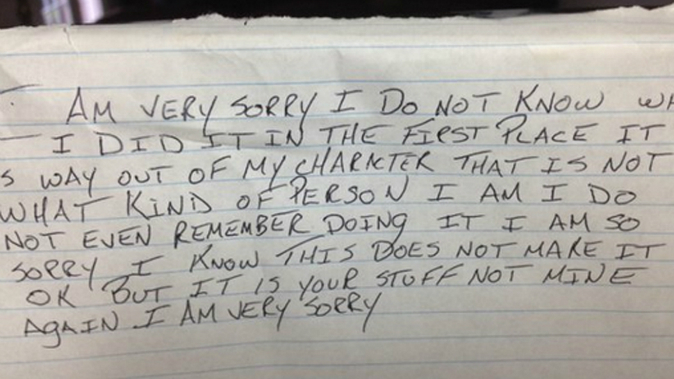 I AM VERY SORRY I DO NOT KNOW
I DID IT IN THE FIRST PLACE IT
S WAY OUT OF MY CHARACTER THAT IS NOT
WHAT KIND OF PERSON I AM I DO
NOT EVEN REMEMBER DOING IT I AM SO
SORRY I KNOW THIS DOES NOT MAKE IT
OK BUT IT IS YOUR STUFF NOT MINE
AGAIN I AM VERY SORRY